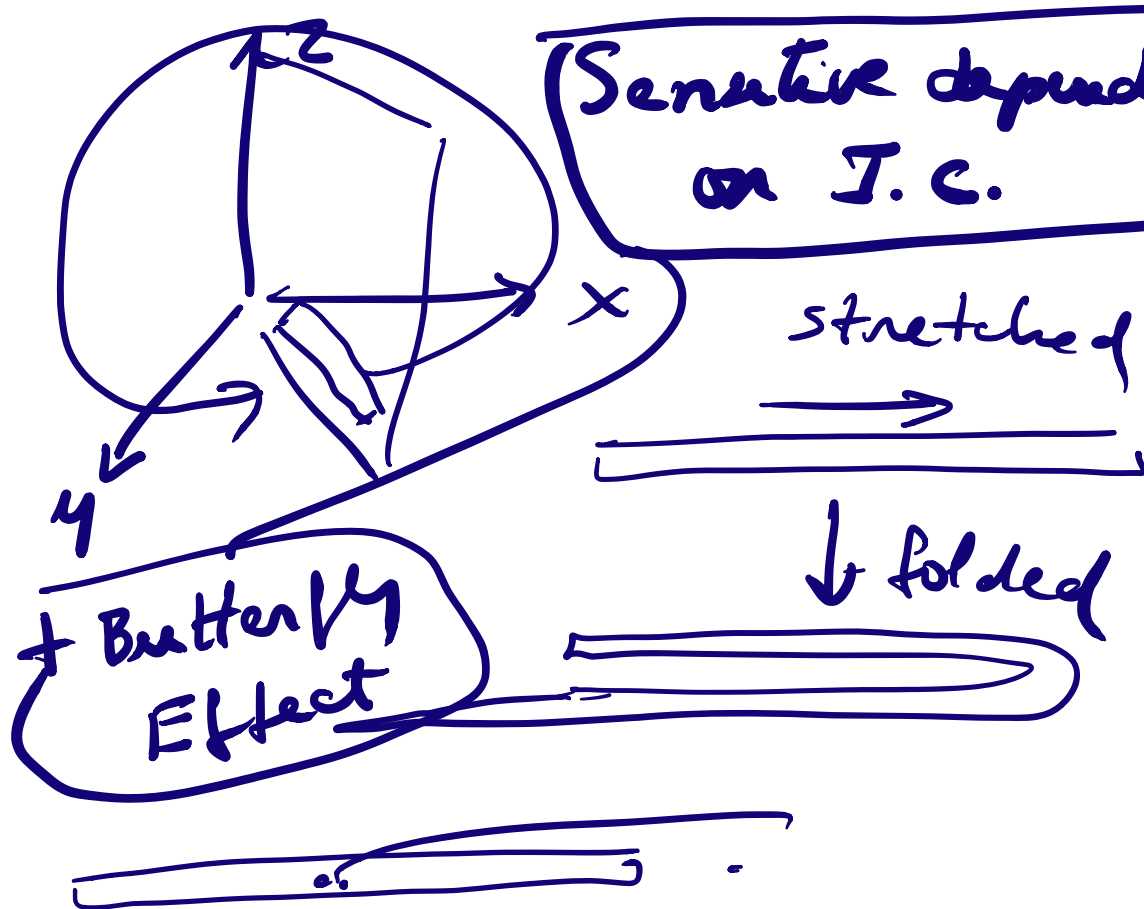 z
Sensitive depend
on I.C.
x
stretched
y
folded
+ Butterfly
Effect